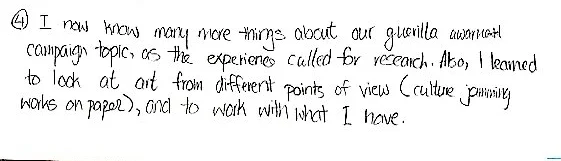 ④ I now know many more things about our guerilla
campaign topic, as the experience called for research. Also, I learned
to look at art from different points of view (culture jamming
works on paper), and to work with what I have.